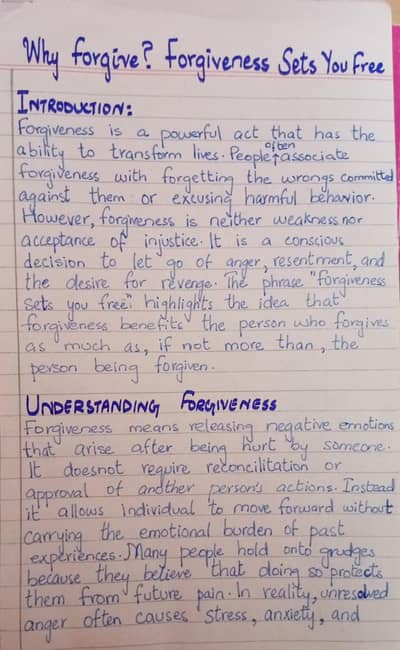 Why forgive? Forgiveness Sets You Free
INTRODUCTION:
Forgiveness is a powerful act that has the
ability to transform lives. People often associate
forgiveness with forgetting the wrongs committed
against them or excusing harmful behavior.
However, forgiveness is neither weakness nor
acceptance of injustice. It is a conscious
decision to let go of anger, resentment, and
the desire for revenge. The phrase "forgiveness
sets you free." highlights the idea that
forgiveness benefits the person who forgives
as much as, if not more than, the
person being forgiven.
UNDERSTANDING FORGIVENESS
Forgiveness means releasing negative emotions
that arise after being hurt by someone.
It doesnot require reconcilitation or
approval of another person's actions. Instead
it allows individual to move forward without
carrying the emotional burden of past
experiences. Many people hold onto grudges
because they believe that doing so protects
them from future pain. In reality, unresolved
anger often causes stress, anxiety, and